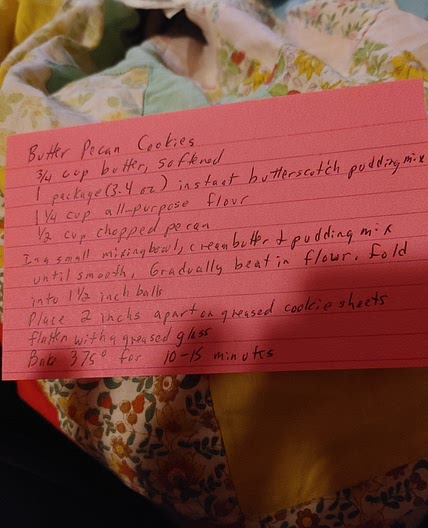 Butter Pecan Cookies
3/4 cup butter, softened
1 package (3.4 oz) instant butterscotch pudding mix
1 1/4 cup all-purpose flour
1/2 cup chopped pecan
In a small mixing bowl, cream butter + pudding mix
until smooth, Gradually beat in flour. fold
into 1 1/2 inch balls
Place 2 inchs apart on greased cookie sheets
flatten with a greased glass
Bake 375° for 10-15 minutes